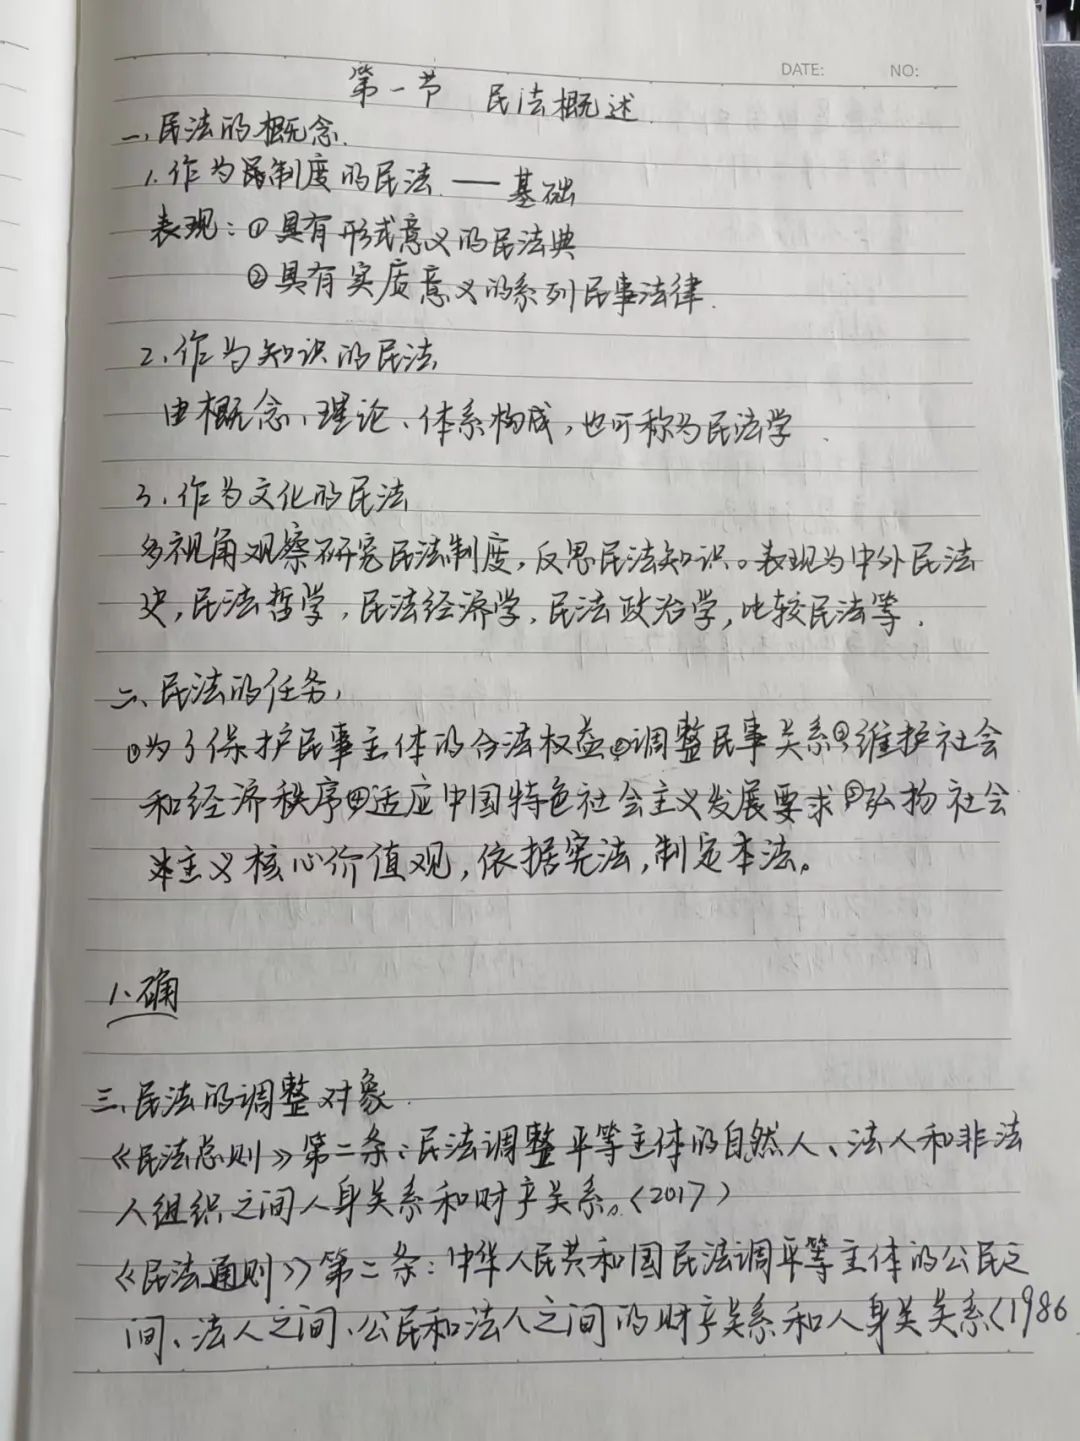 DATE: NO:
第一节 民法概述.
一、民法的概念.
1.作为制度的民法 —— 基础
表现:①具有形式意义的民法典
②具有实质意义的系列民事法律.
2.作为知识的民法
由概念、理论、体系构成,也可称为民法学.
3.作为文化的民法
多视角观察研究民法制度,反思民法知识。表现为中外民法
史,民法哲学,民法经济学,民法政治学,比较民法等.
二、民法的任务,
①为了保护民事主体的合法权益②调整民事关系③维护社会
和经济秩序④适应中国特色社会主义发展要求⑤弘扬社会
主义核心价值观,依据宪法,制定本法。
1.确
三、民法的调整对象.
《民法总则》第二条:民法调整平等主体的自然人、法人和非法
人组织之间人身关系和财产关系。(2017)
《民法通则》第二条:中华人民共和国民法调平等主体的公民之
间、法人之间、公民和法人之间的财产关系和人身关关系(1986